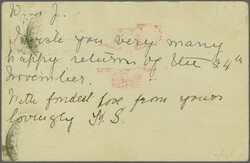 I wish you very many
happy returns of the 24th
November.
With fondest love from yours
lovingly H. S.